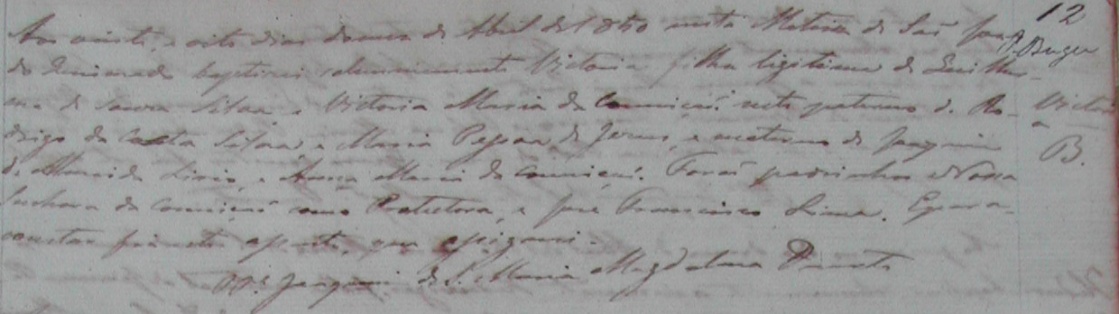 12
Aos vinte e oito dias do mes de Abril de 1850 nesta Matriz de São José
do baptizei solemnemente Victoria filha ligitima de Guilher-
me de Souza Silva, e Victoria Maria da Conceição neta paterna de Ro-
drigo da Costa Silva, e Maria Pessoa de Jesus, e materna de Joaquim
de Lirio, e Anna Maria da Conceição. Forão padrinhos Nossa
Senhora da Conceição como Protectora, e José Francisco Lima. E para
constar fiz este assento, que assignei.
Joaquim de S. Maria Magdalena Duarte
Victori
a
B.